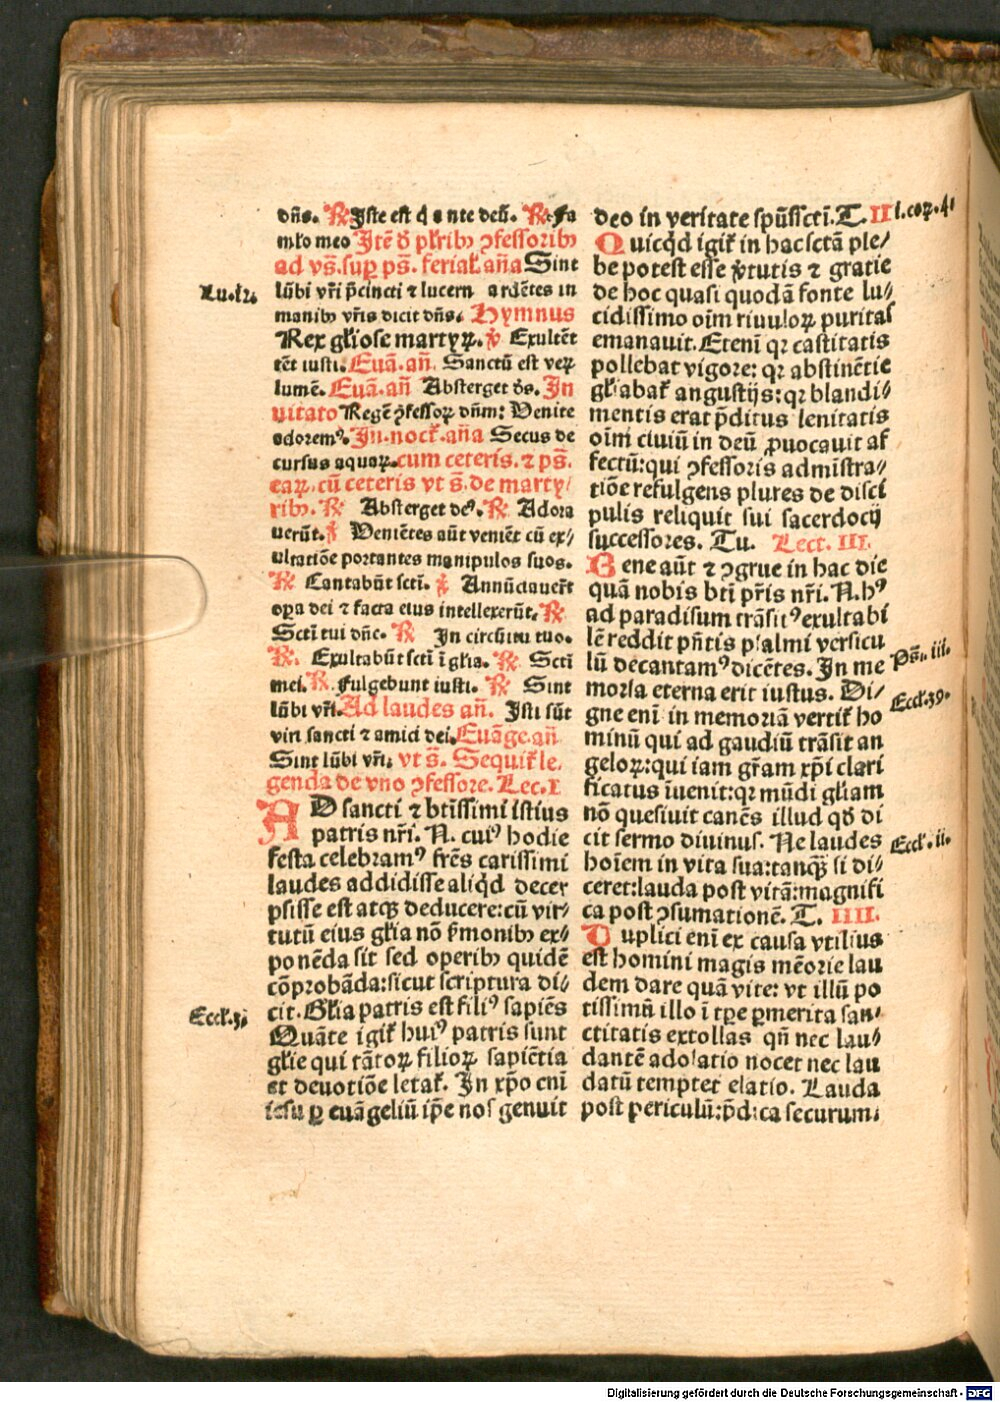 dn̄s. ℟ Iste est q̇ ante deū. ℟ Fa
mĺo meo Itē ď pĺribꝰ ꝯfessoribꝰ
ad vs̄. suꝑ ps̄. feriaĺ. an̄a Sint
Lu.12.
lūbi vr̄i p̄cincti ⁊ lucern ardētes in
manibꝰ vr̄is dicit dn̄s. Hymnus
Rex gĺiose martyꝝ. ℣ Exultēt
tēt iusti. Euā. an̄. Sanctū est veꝝ
lumē. Euā. an̄ Absterget ďs. In
uitato Regē ꝯfessoꝝ dn̄m: Venite
adoremꝰ. In. nocť. an̄a Secus de
cursus aquaꝝ. cum ceteris. ⁊ ps̄.
eaꝝ. cū ceteris vt s̄. de marty/
ribꝰ. ℟ Absterget deꝰ. ℟ Adora
uerūt. ℣ Veniētes aūt veniēt cū ex/
ultatiōe portantes manipulos suos.
℟ Cantabūt scti. ℣ Annūciauer̄t
oꝑa dei ⁊ facta eius intellexerūt. ℟
Scti tui dn̄e. ℟ In circūitu tuo.
℟. Exultabūt scti ī gĺia. ℟ Scti
mei. ℟. Fulgebunt iusti. ℟ Sint
lūbi vr̄i. Ad laudes an̄. Isti sūt
viri sancti ⁊ amici dei. Euāge. an̄
Sint lūbi vr̄i. vt s̄. Sequiť le.
genda de vno ꝯfessore. Lec. I
AD sancti ⁊ btīssimi istius
patris nr̄i. N. cuiꝰ hodie
festa celebramꝰ fr̄es carissimi
laudes addidisse aliq̇d decer
psisse est atqꝫ deducere: cū vir/
tutū eius gĺia nō s̄monibꝰ ex/
ponēda sit sed operibꝰ quidē
cōprobāda: sicut scriptura di/
Eccĺ.3.
cit. Gĺia patris est filiꝰ sapiēs
Quāte igiť huiꝰ patris sunt
gĺie qui tātoꝝ filioꝝ sapiētia
et deuotiōe letať. In xp̄o eni
iesu ꝑ euāgeliū ip̄e nos genuit
deo in veritate spūsscti. T. II
I.coꝝ.4.
Quicq̇d igiť in hac sctā ple/
be potest esse v̇tutis ⁊ gratie
de hoc quasi quodā fonte lu/
cidissimo oīm riuuloꝝ puritas
emanauit. Etenī qꝛ castitatis
pollebat vigore: qꝛ abstinētie
gĺiabať angustijs: qꝛ blandi/
mentis erat p̄ditus lenitatis
oīm ciuiū in deū ꝓuocauit af
fectū: qui ꝯfessoris admīstra/
tiōe refulgens plures de disci
pulis reliquit sui sacerdocij
successores. Tu. Lect. III.
Bene aūt ⁊ ꝯgrue in hac die
quā nobis bti pr̄is nr̄i. N. hꝰ
ad paradisum trāsitꝰ exultabi
lē reddit pn̄tis psalmi versicu
Ps̄. iii.
lū decantamꝰ dicētes. In me
moria eterna erit iustus. Di/
Eccĺ.39.
gne enī in memoriā vertiť ho
minū qui ad gaudiū trāsit an
geloꝝ: qui iam gr̄am xp̄i clari
ficatus īuenit: qꝛ mūdi gĺiam
nō quesiuit canēs illud qď di
cit sermo diuinus. Ne laudes
Eccĺ. ii.
hoīem in vita sua: tanqꝫ si di/
ceret: lauda post vitā: magnifi
ca post ꝯsumationē. T. IIII.
Duplici enī ex causa vtilius
est homini magis mēorie lau
dem dare quā vite: vt illū po
tissimū illo ī tꝑe ꝑmerita san/
ctitatis extollas qn̄ nec lau/
dantē adolatio nocet nec lau
datū temptet elatio. Lauda
post periculū: p̄dica securum.
Digitalisierung gefördert durch die Deutsche Forschungsgemeinschaft - DFG